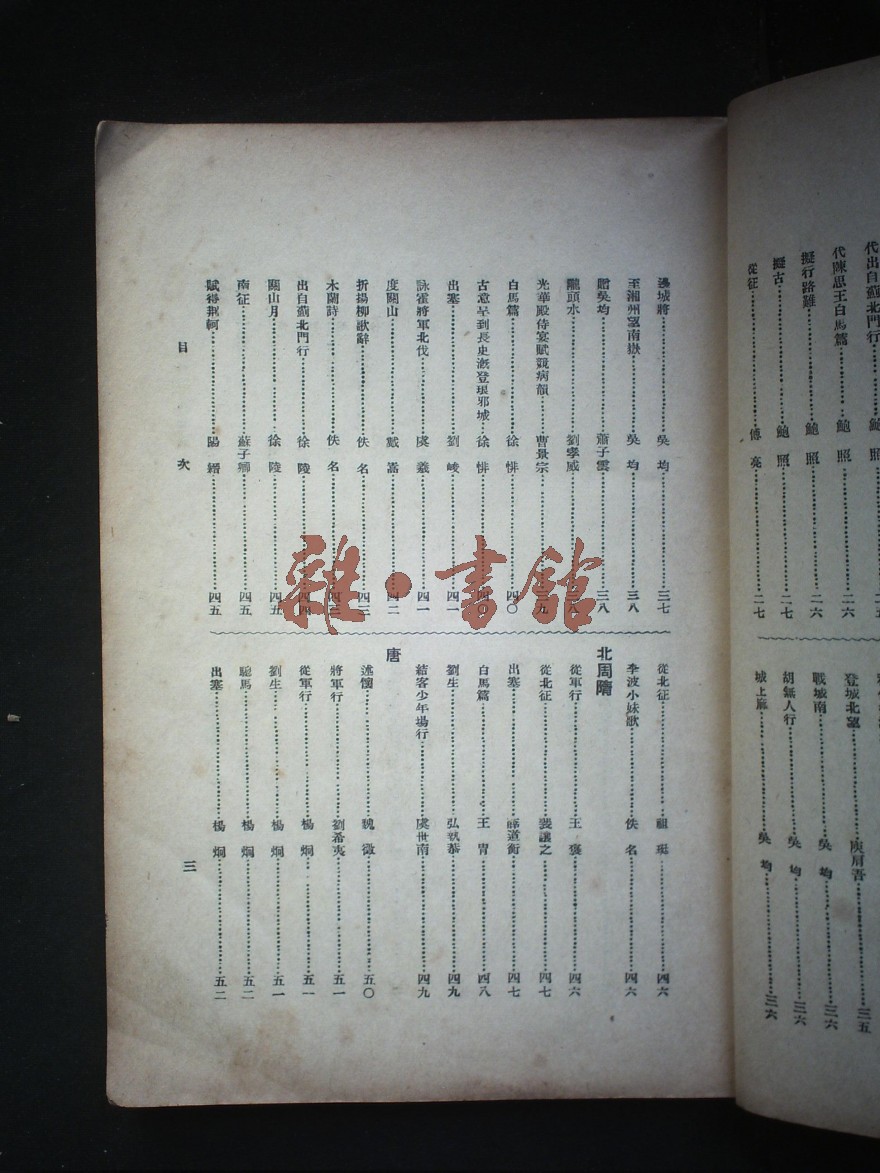 代出自薊北門行
代陳思王白馬篇……鮑照……二六
擬行路難……鮑照……二六
擬古……鮑照……二七
從征……傅亮……二七
登城北望……庾肩吾……三五
戰城南……吳均……三六
胡無人行……吳均……三六
城上麻……吳均……三六
邊城將……吳均……三七
至湘州望南嶽……吳均……三八
贈吳均……蕭子雲……三八
隴頭水……劉孝威……三八
光華殿侍宴賦競病韻……曹景宗……三九
白馬篇……徐悱……四〇
古意早到長史溉登琅邪城……徐悱……四〇
出塞……劉峻……四一
詠霍將軍北伐……虞羲……四一
度關山……戴嵩……四二
折揚柳歌辭……佚名……四三
木蘭詩……佚名……四三
出自薊北門行……徐陵……四四
關山月……徐陵……四五
南征……蘇子卿……四五
賦得荆軻……陽縉……四五
從北征……祖珽……四六
李波小妹歌……佚名……四六
北周隋
從軍行……王褒……四六
從北征……裴讓之……四七
出塞……薛道衡……四七
白馬篇……王胄……四八
劉生……弘執恭……四九
結客少年場行……虞世南……四九
唐
述懷……魏徵……五〇
將軍行……劉希夷……五一
從軍行……楊烱……五一
劉生……楊烱……五一
驄馬……楊烱……五二
出塞……楊烱……五二
目次
三
雜·書館